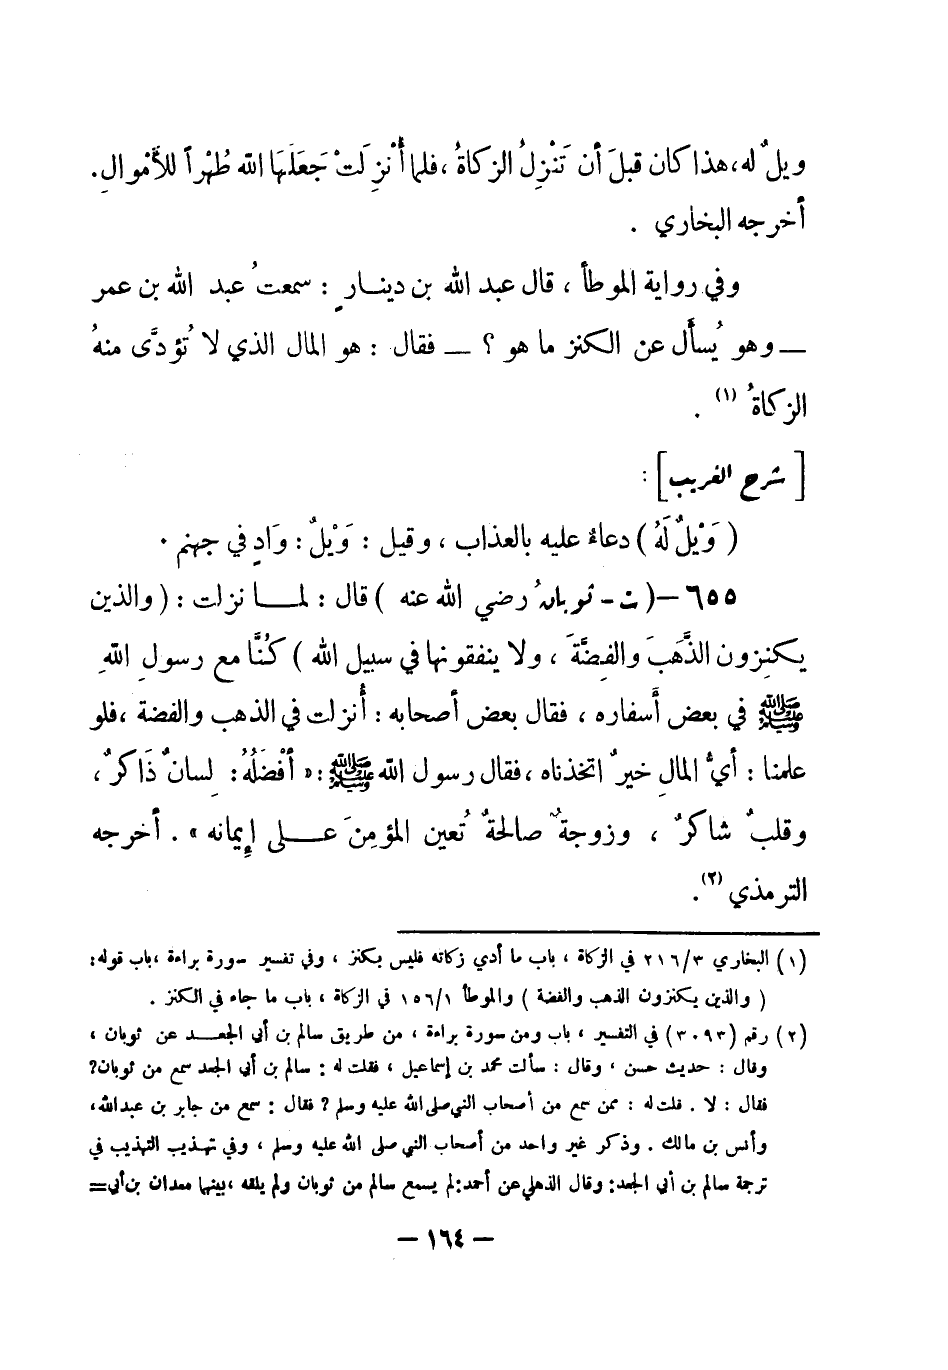 ويلٌ له، هذا كان قبلَ أن تَنْزِلُ الزكاةُ، فلما أُنْزِلَتْ جَعَلَهَا الله طُهْراً للأموالِ.
أخرجه البخاري .
وفي رواية الموطأ ، قال عبد الله بن دينــارٍ : سمعتُ عبد الله بن عمر
ــ وهو يُسأَل عن الكنز ما هو ؟ ــ فقال : هو المال الذي لا تُؤدَّى منهُ
الزكاةُ (١) .
[ شرح الغريب ] :
( وَيْلٌ لَهُ ) دعاءٌ عليه بالعذاب ، وقيل : وَيْلٌ : وَادٍ في جهنم .
٦٥٥ – ( ت - ثوبانُ رضي الله عنه ) قال : لمــا نزلت : ( والذين
يكنِزون الذَّهَبَ والفِضَّةَ ، ولا ينفقونها في سبيل الله ) كُنَّا مع رسولِ اللهِ
ﷺ في بعض أَسفاره ، فقال بعض أصحابه : أُنزلت في الذهب والفضة ، فلو
علمنا : أيُّ المالِ خيرٌ اتخذناه ، فقال رسول الله ﷺ : « أفْضَلُهُ : لِسانٌ ذَاكرٌ ،
وقلبٌ شاكرٌ ، وزوجةٌ صالحةٌ تُعين المؤمِنَ عــلى إيمانه » . أخرجه
الترمذي (٢) .
(١) البخاري ٢١٦/٣ في الزكاة ، باب ما أدي زكاته فليس بكنز ، وفي تفسير سورة براءة ، باب قوله :
( والذين يكنزون الذهب والفضة ) والموطأ ١٥٦/١ في الزكاة ، باب ما جاء في الكنز .
(٢) رقم (٣٠٩٣) في التفسير ، باب ومن سورة براءة ، من طريق سالم بن أبي الجعــد عن ثوبان ،
وقال : حديث حسن ، وقال : سألت محمد بن إسماعيل ، فقلت له : سالم بن أبي الجعد سمع من ثوبان؟
فقال : لا . قلت له : ممن سمع من أصحاب النبي صلى الله عليه وسلم ؟ فقال : سمع من جابر بن عبدالله ،
وأنس بن مالك . وذكر غير واحد من أصحاب النبي صلى الله عليه وسلم ، وفي تهذيب التهذيب في
ترجمة سالم بن أبي الجعد : وقال الذهلي عن أحمد : لم يسمع سالم من ثوبان ولم يلقه ، بينهما معدان بن أبي =
– ١٦٤ –